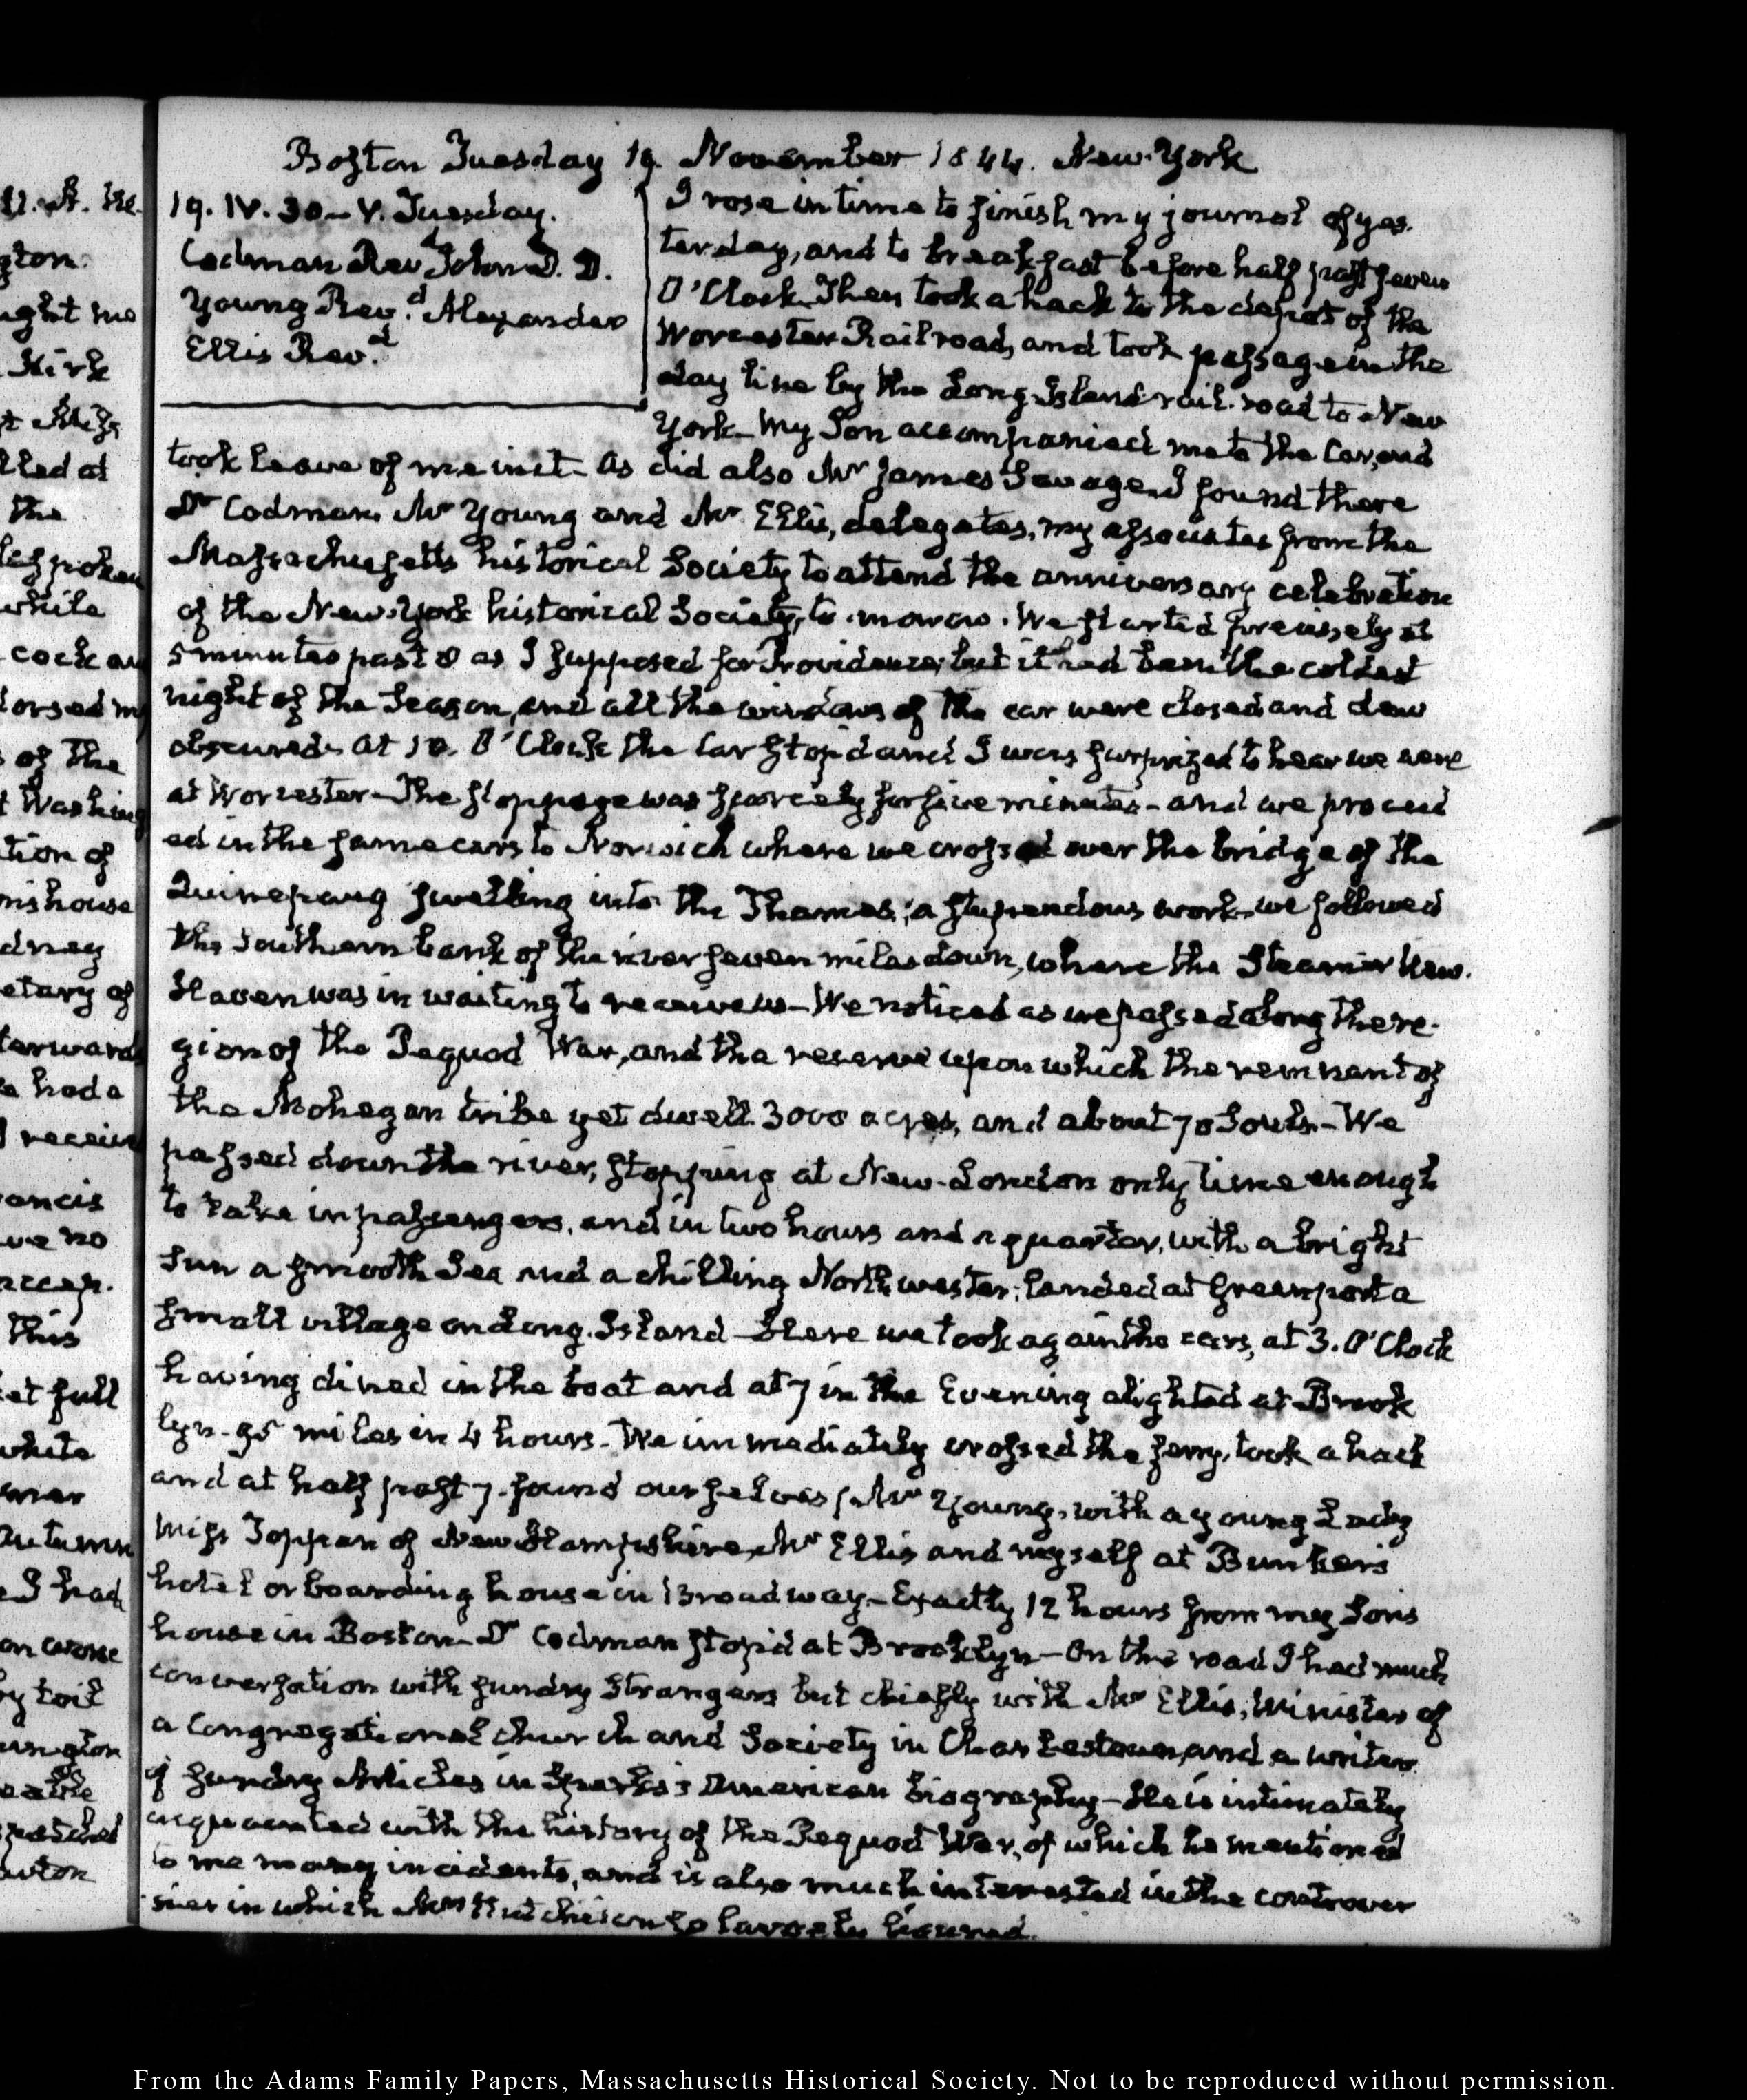 Boston Tuesday 19. November 1844. New-York
19. IV. 30 – V. Tuesday.
Codman Revd. John D. D.
Young Revd. Alexander
Ellis Revd.
I rose in time to finish my journal of yes-
terday, and to breakfast before half past seven
O'Clock. Then took a hack to the depot of the
Worcester Railroad, and took passage in the
day line by the Long-Island rail-road to New
York – My Son accompanied me to the Car, and
took leave of me in it – As did also Mr James Savage. I found there
Dr Codman, Mr Young and Mr Ellis, delegates, my associates from the
Massachusetts historical Society to attend the anniversary celebration
of the New-York historical Society, to-morrow. We started precisely at
5 minutes past 8 as I supposed for Providence; but it had been the coldest
night of the Season, and all the windows of the car were closed and dew
obscured. At 10. O'Clock the Car stop'd and I was surprized to hear we were
at Worcester – The stoppage was scarcely for five minutes – and we proceed
ed in the same cars to Norwich where we crossed over the bridge of the
Quinepaug swelling into the Thames; a stupendous work – we followed
the Southern bank of the river seven miles down, where the Steamer New-
Haven was in waiting to receive us – We noticed as we passed along the re-
gion of the Pequod War, and the reserve upon which the remnant of
the Mohegan tribe yet dwell. 3000 acres, and about 70 Souls. – We
passed down the river, stopping at New-London only time enough
to take in passengers, and in two hours and a quarter, with a bright
Sun a smooth Sea and a chilling Northwester, landed at Greenport a
small village on Long-Island – Here we took again the cars, at 3. O'Clock
having dined in the boat and at 7 in the Evening alighted at Brook
lyn – 95 miles in 4 hours – We immediately crossed the ferry, took a hack
and at half past 7. found ourselves, Mr Young, with a young Lady
Miss Toppan of New Hampshire, Mr Ellis and myself at Bunker's
hotel or boarding house in Broadway – Exactly 12 hours from my Son's
house in Boston – Dr Codman stop'd at Brooklyn – On the road I had much
conversation with sundry Strangers but chiefly with Mr Ellis, Minister of
a Congregational church and Society in Charlestown, and a writer
of sundry Articles in Sparks's American biography – He is intimately
acquainted with the history of the Pequod War, of which he mentioned
to me many incidents, and is also much interested in the controver
sies in which Mrs Hutchinson so largely figured.
From the Adams Family Papers, Massachusetts Historical Society. Not to be reproduced without permission.